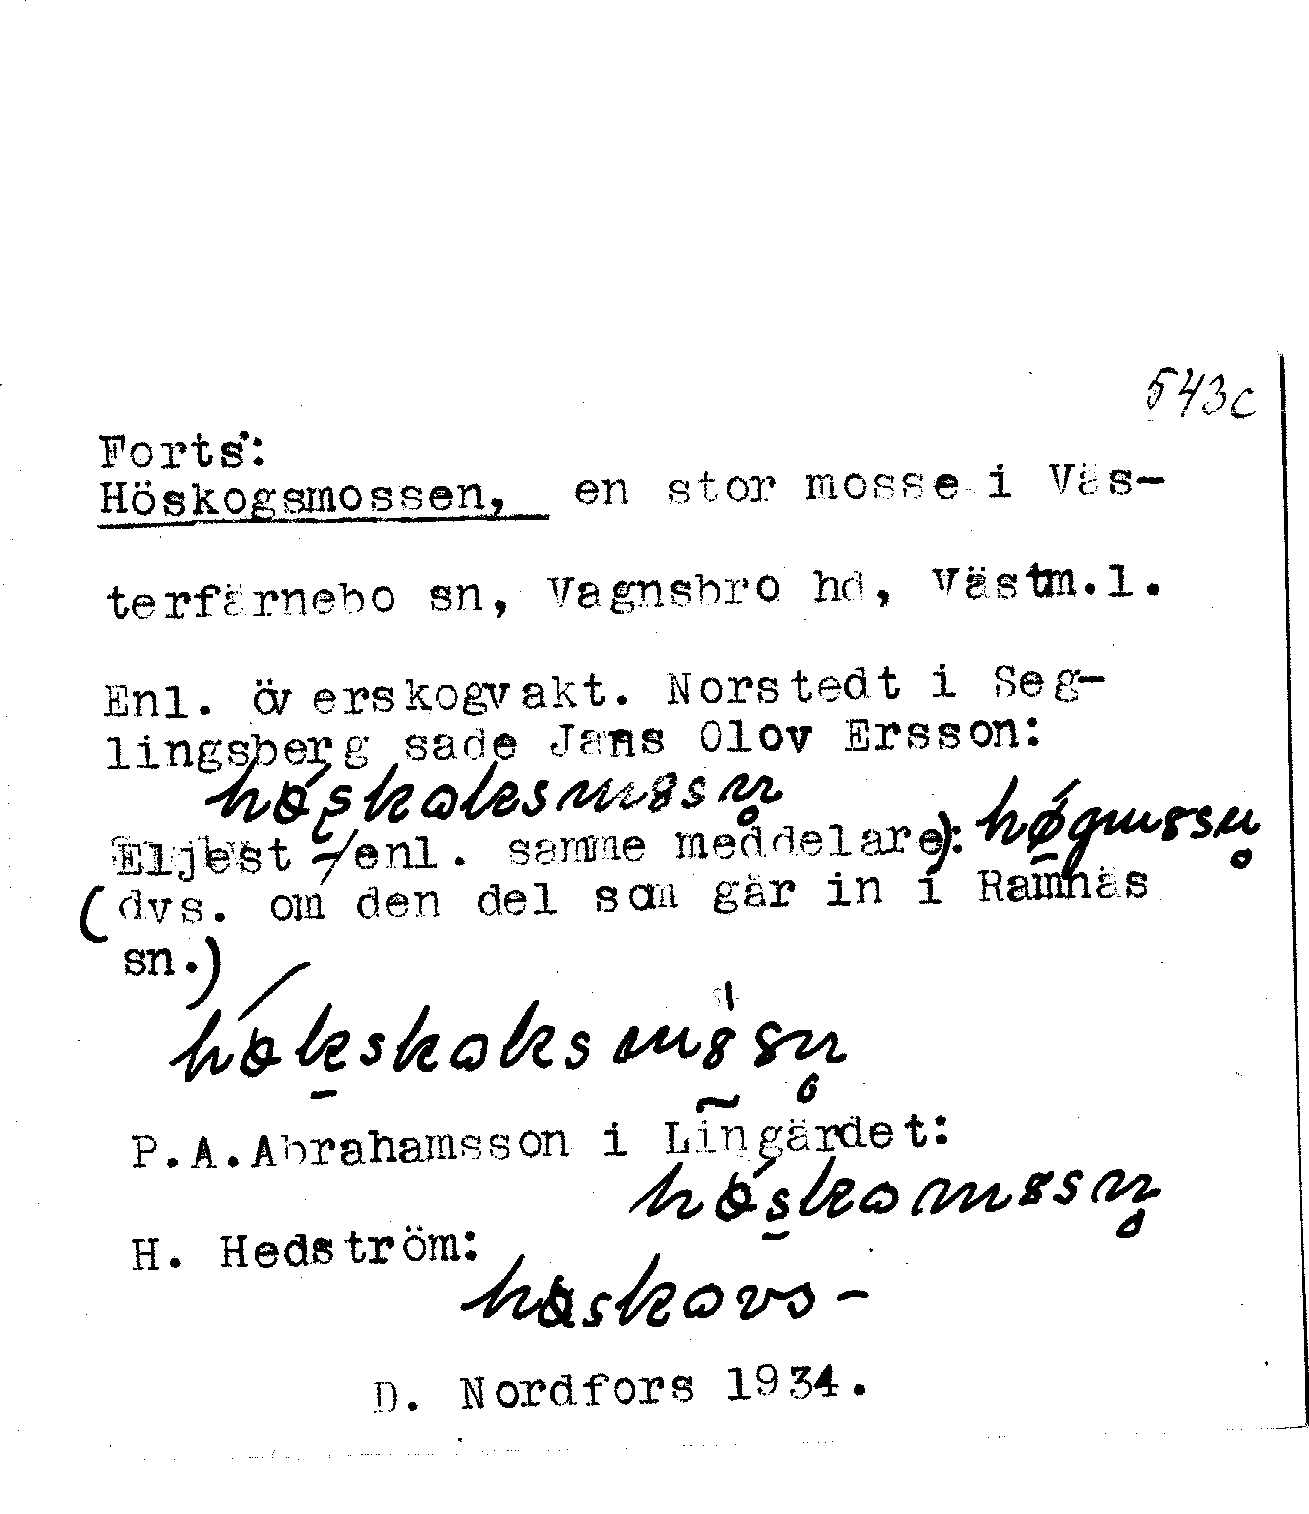 543c
Forts:
Höskogsmossen, en stor mosse i Väs-
terfärnebo sn, Vagnsbro hd, Västm.l.
Enl. överskogvakt. Norstedt i Seg-
lingsberg sade Jans Olov Ersson:
Eljest (enl. samme meddelare):
(dvs. om den del som går in i Ramnäs
sn.)
P.A.Abrahamsson i Lingärdet:
H. Hedström:
D. Nordfors 1934.